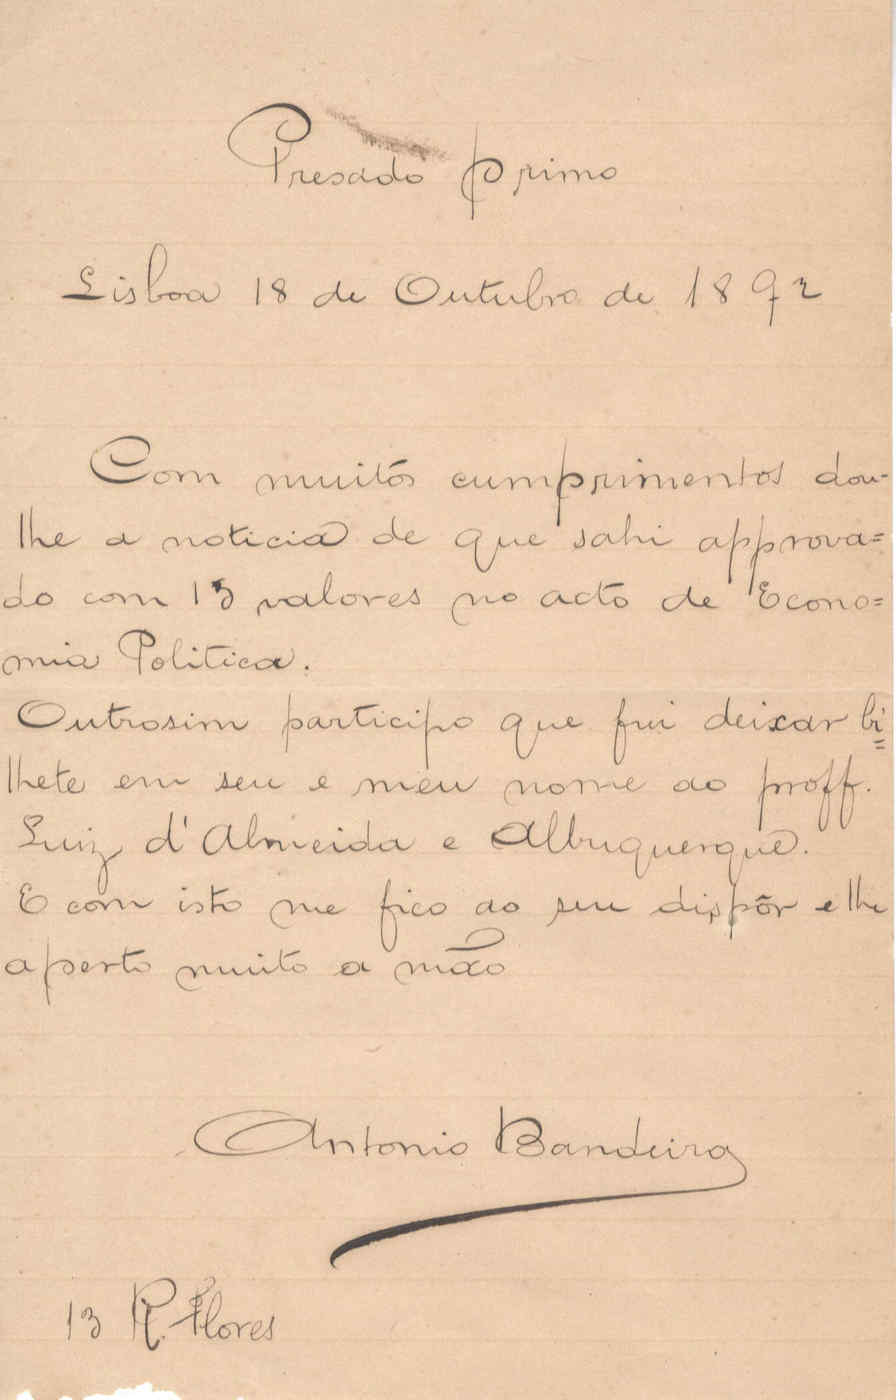 Presado primo
Lisboa 18 de Outubro de 1892
Com muitos cumprimentos dou-
lhe a noticia de que sahi approva=
do com 13 valores no acto de Econo=
mia Politica.
Outrosim participo que fui deixar bi=
lhete em seu e meu nome ao proff.
Luiz d'Almeida e Albuquerque.
E com isto me fico ao seu dispôr e lhe
aperto muito a mão
Antonio Bandeira
13 R. Flores